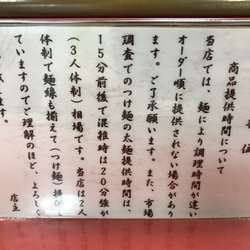 各位
商品提供時間について
当店では、麺により調理時間が違い
オーダー順に提供されない場合があり
ます。ご了承願います。また、市場
調査でのつけ麺の太麺提供時間は、
15分前後で混雑時は20分強が
(3人体制)相場です。当店は2人
体制で麺線も揃えて(つけ麺)提供し
ていますのでご理解のほど、よろしく
店主